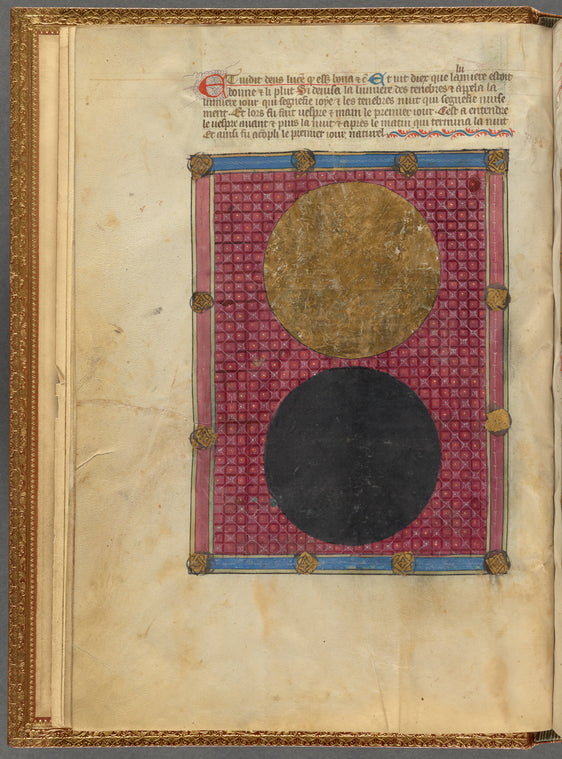 lu
Et uidit deus lucē qͥ esset bona ⁊ c̄. Et uit diex que la miere estoit
bonne ⁊ li plut Si deuisa la lumiere des tenebres ⁊ apela la
lumiere iour qui segnefie ioye ⁊ les tenebres nuit qui segnefie nuise
ment. Et lors fu fait vespre ⁊ main le premier iour. Cest a entendre
le vespre auant ⁊ puis la nuit ⁊ apres le matin qui termina la nuit
Et ainsi fu acōpli le premier iour naturel.